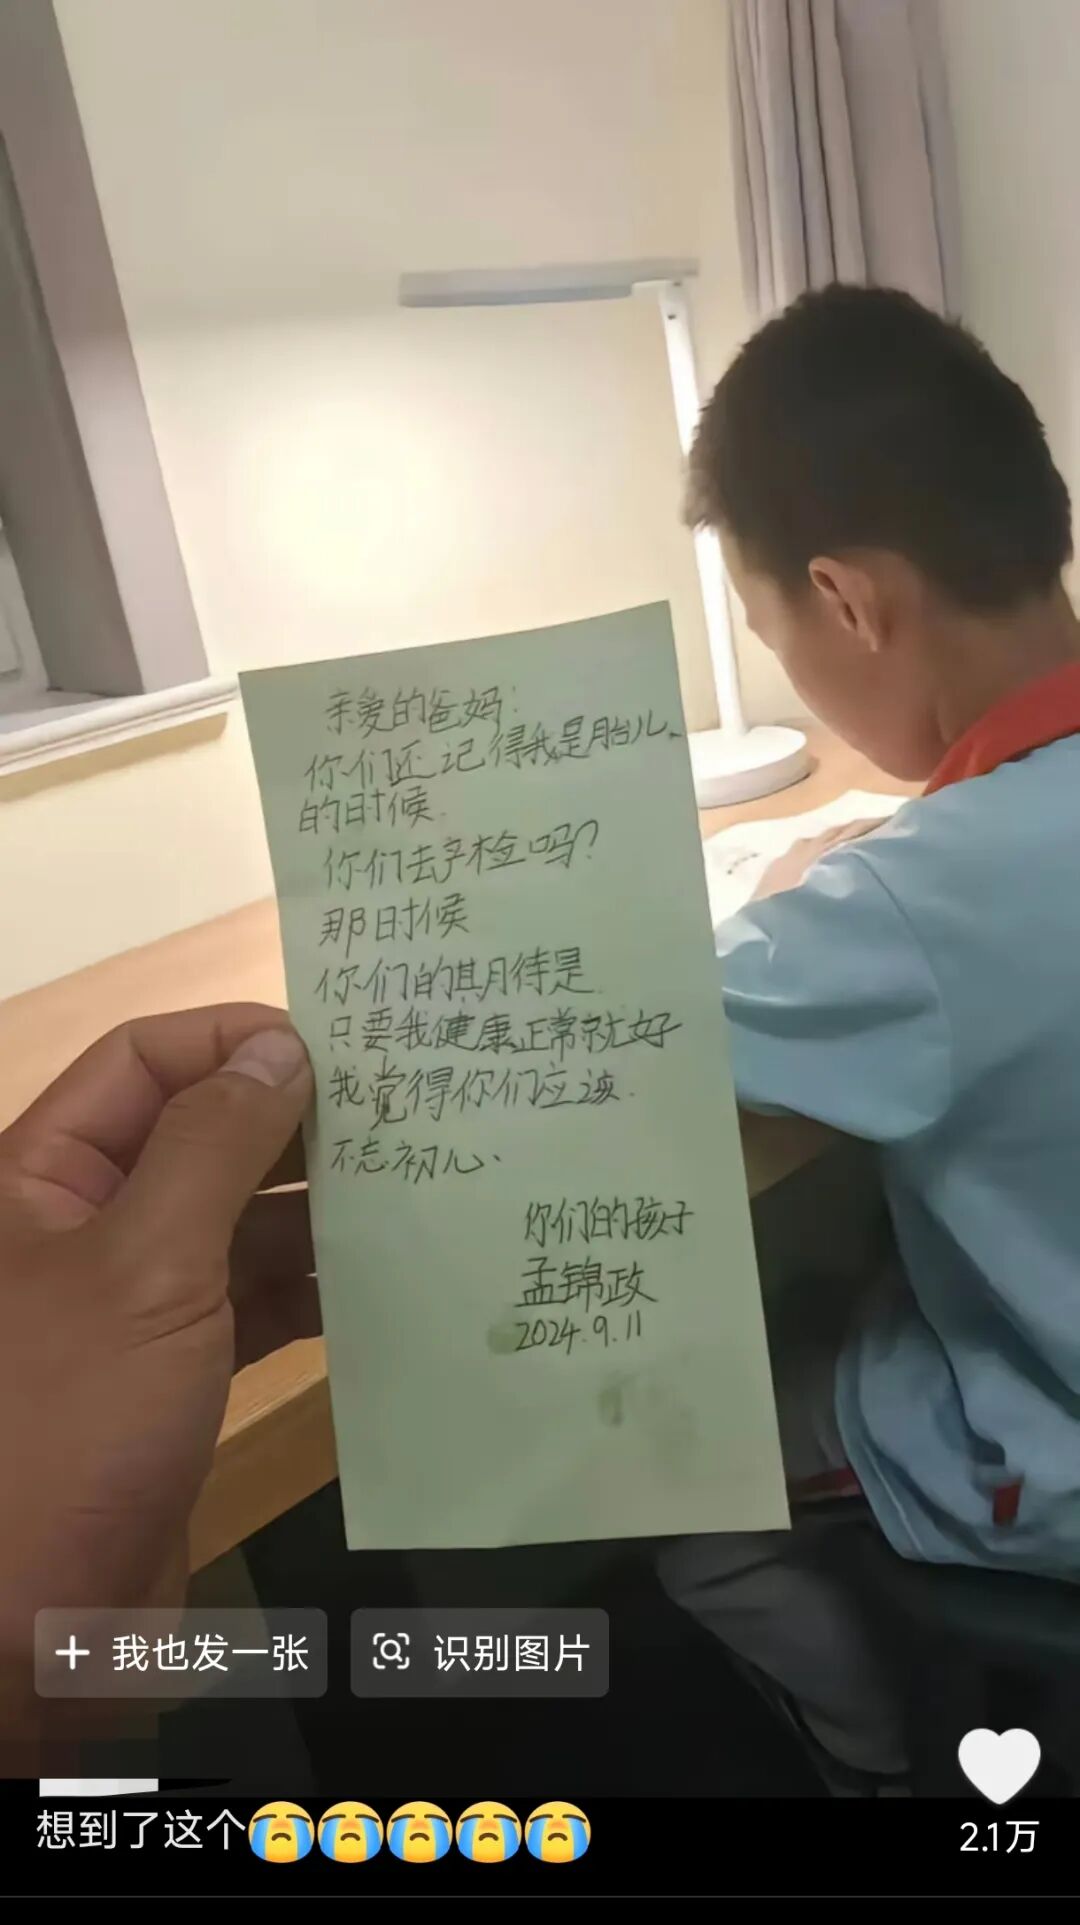 亲爱的爸妈：
你们还记得我是胎儿
的时候.
你们去产检吗？
那时候
你们的期待是
只要我健康正常就好
我觉得你们应该.
不忘初心、
你们的孩子
孟锦政
2024.9.11
我也发一张
识别图片
想到了这个😭😭😭😭😭
2.1万